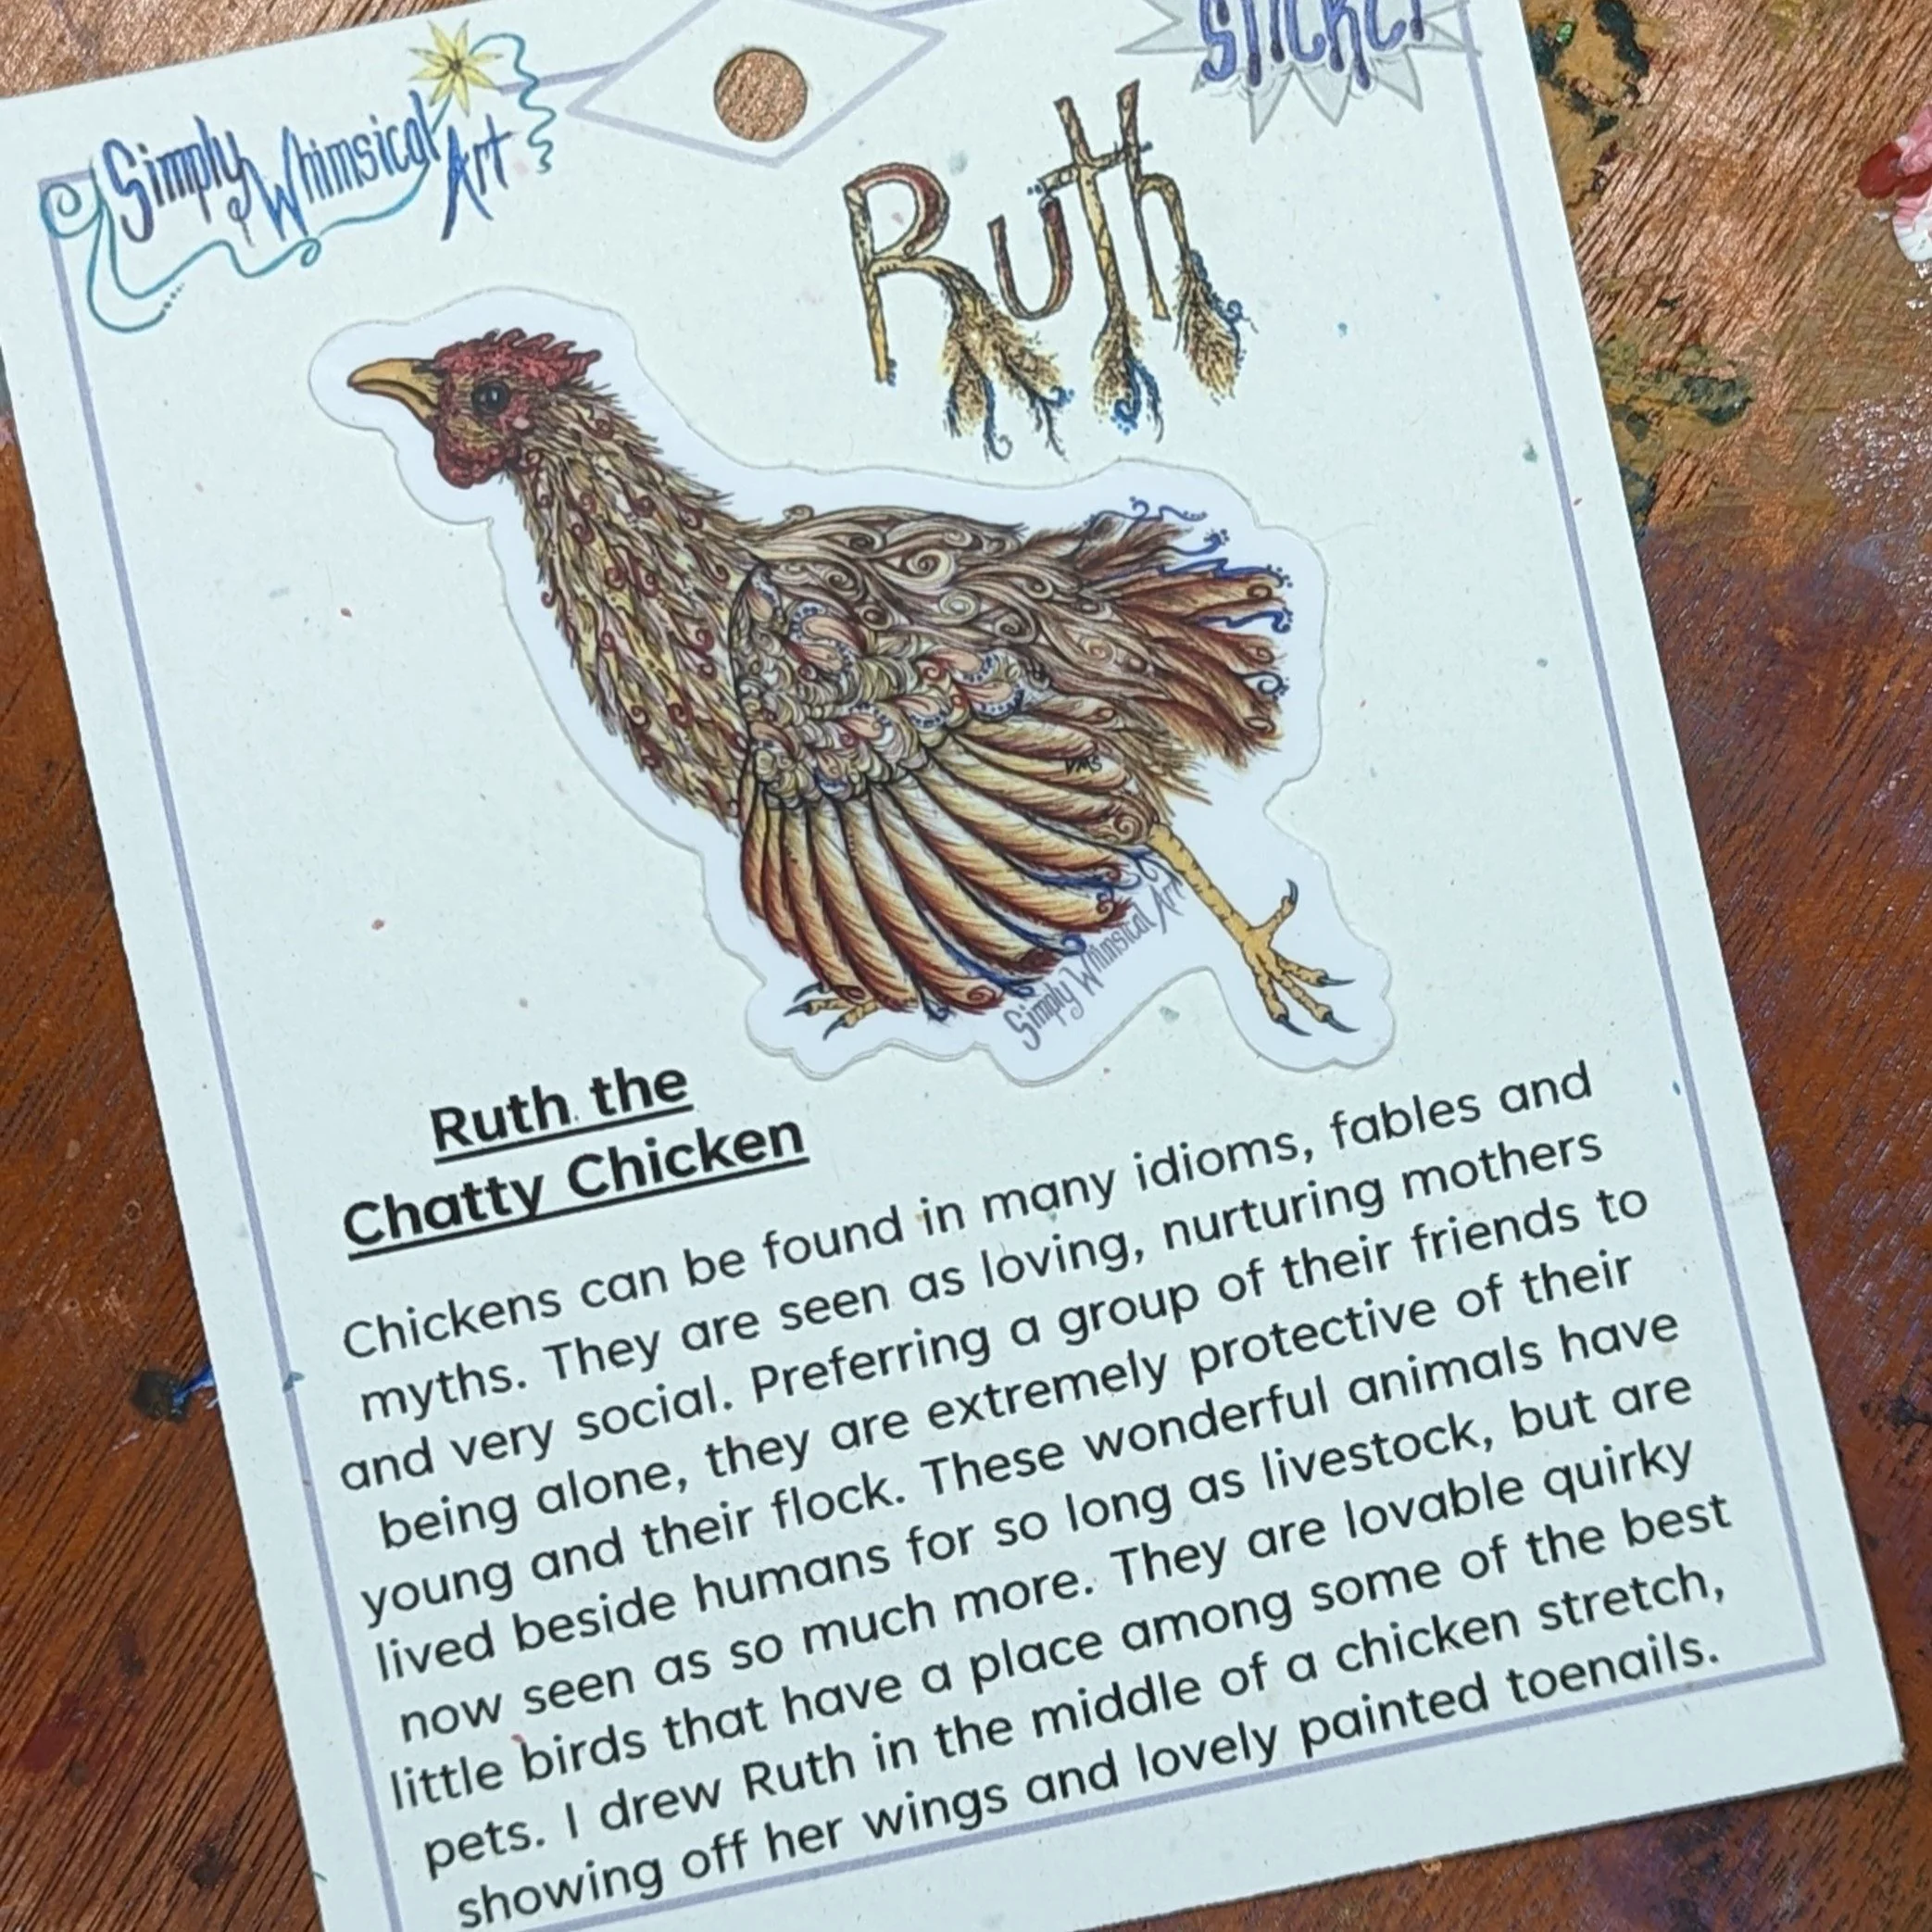 Sticker
Simply Whimsical Art
Ruth
VMS
Simply Whimsical Art
Ruth the
Chatty Chicken
Chickens can be found in many idioms, fables and
myths. They are seen as loving, nurturing mothers
and very social. Preferring a group of their friends to
being alone, they are extremely protective of their
young and their flock. These wonderful animals have
lived beside humans for so long as livestock, but are
now seen as so much more. They are lovable quirky
little birds that have a place among some of the best
pets. I drew Ruth in the middle of a chicken stretch,
showing off her wings and lovely painted toenails.